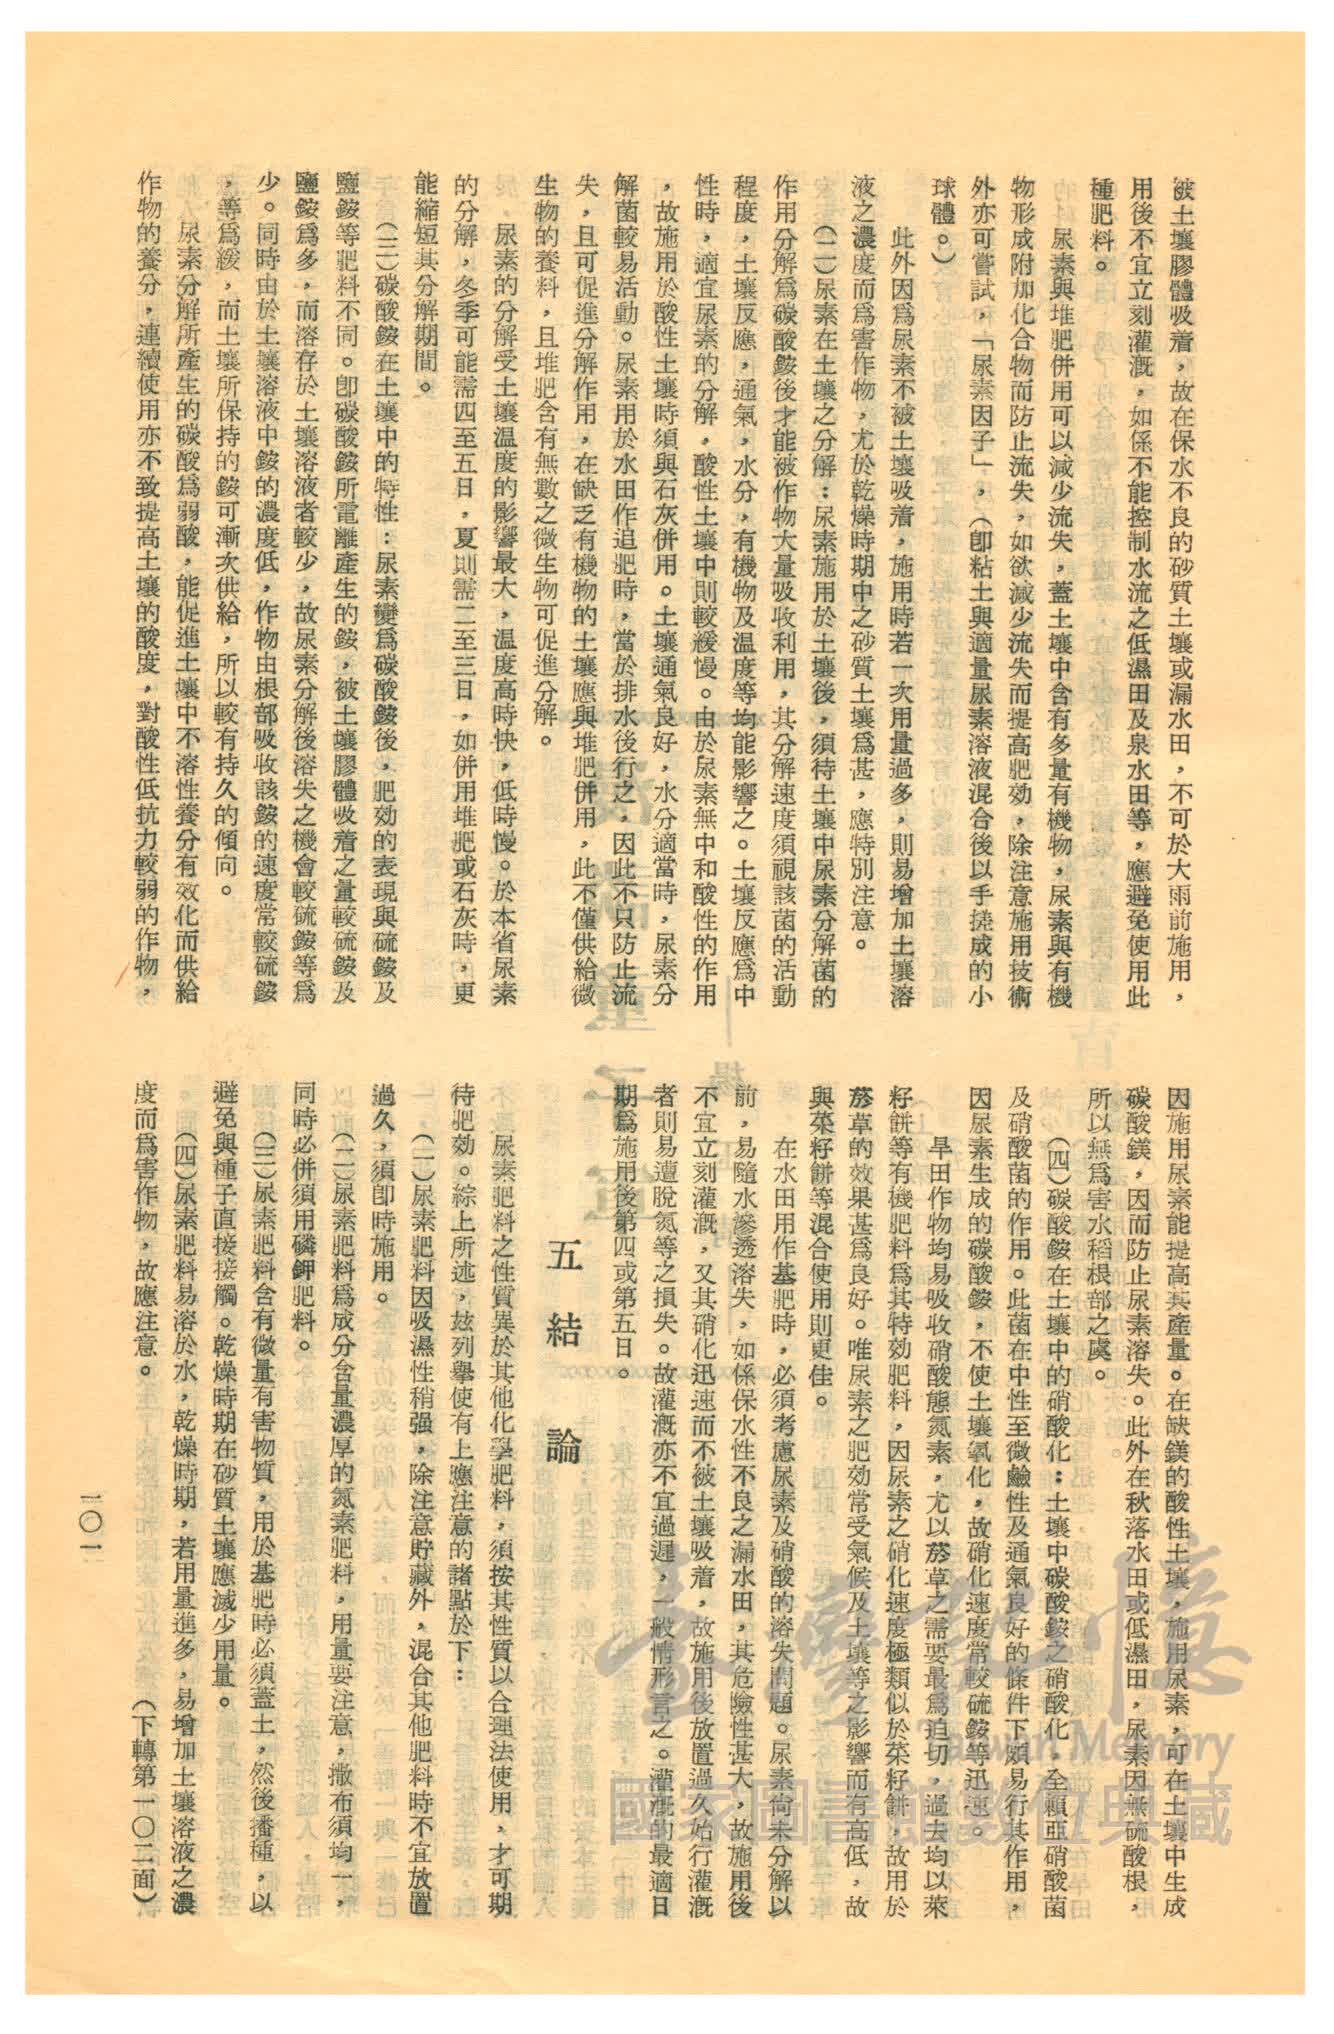 被土壤膠體吸着，故在保水不良的砂質土壤或漏水田，不可於大雨前施用，
用後不宜立刻灌漑，如係不能控制水流之低濕田及泉水田等，應避免使用此
種肥料。
尿素與堆肥併用可以減少流失，蓋土壤中含有多量有機物，尿素與有機
物形成附加化合物而防止流失，如欲減少流失而提高肥効，除注意施用技術
外亦可嘗試，「尿素因子」，（卽粘土與適量尿素溶液混合後以手搓成的小
球體。）
此外因爲尿素不被土壤吸着，施用時若一次用量過多，則易增加土壤溶
液之濃度而爲害作物，尤於乾燥時期中之砂質土壤爲甚，應特別注意。
（二）尿素在土壤之分解：尿素施用於土壤後，須待土壤中尿素分解菌的
作用分解爲碳酸銨後才能被作物大量吸收利用，其分解速度須視該菌的活動
程度，土壤反應，通氣，水分，有機物及溫度等均能影響之。土壤反應爲中
性時，適宜尿素的分解，酸性土壤中則較緩慢。由於尿素無中和酸性的作用
，故施用於酸性土壤時須與石灰併用。土壤通氣良好，水分適當時，尿素分
解菌較易活動。尿素用於水田作追肥時，當於排水後行之，因此不只防止流
失，且可促進分解作用，在缺乏有機物的土壤應與堆肥併用，此不僅供給微
生物的養料，且堆肥含有無數之微生物可促進分解。
尿素的分解受土壤溫度的影響最大，溫度高時快，低時慢。於本省尿素
的分解，冬季可能需四至五日，夏則需二至三日，如併用堆肥或石灰時，更
能縮短其分解期間。
（三）碳酸銨在土壤中的特性：尿素變爲碳酸銨後，肥効的表現與硫銨及
鹽銨等肥料不同。卽碳酸銨所電離產生的銨，被土壤膠體吸着之量較硫銨及
鹽銨爲多，而溶存於土壤溶液者較少，故尿素分解後溶失之機會較硫銨等爲
少。同時由於土壤溶液中銨的濃度低，作物由根部吸收該銨的速度常較硫銨
，等爲緩，而土壤所保持的銨可漸次供給，所以較有持久的傾向。
尿素分解所產生的碳酸爲弱酸，能促進土壤中不溶性養分有效化而供給
作物的養分，連續使用亦不致提高土壤的酸度，對酸性低抗力較弱的作物，
因施用尿素能提高其產量。在缺鎂的酸性土壤，施用尿素，可在土壤中生成
碳酸鎂，因而防止尿素溶失。此外在秋落水田或低濕田，尿素因無硫酸根，
所以無爲害水稻根部之虞。
（四）碳酸銨在土壤中的硝酸化：土壤中碳酸銨之硝酸化，全賴亞硝酸菌
及硝酸菌的作用。此菌在中性至微鹼性及通氣良好的條件下頗易行其作用，
因尿素生成的碳酸銨，不使土壤氧化，故硝化速度常較硫銨等迅速。
旱田作物均易吸收硝酸態氮素，尤以菸草之需要最爲迫切，過去均以萊
籽餅等有機肥料爲其特効肥料，因尿素之硝化速度極類似於菜籽餅，故用於
菸草的效果甚爲良好。唯尿素之肥効常受氣候及土壤等之影響而有高低，故
與菜籽餅等混合使用則更佳。
在水田用作基肥時，必須考慮尿素及硝酸的溶失問題。尿素尙未分解以
前，易隨水滲透溶失，如係保水性不良之漏水田，其危險性甚大，故施用後
不宜立刻灌漑，又其硝化迅速而不被土壤吸着，故施用後放置過久始行灌漑
者則易遭脫氮等之損失。故灌漑亦不宜過遲，一般情形言之。灌漑的最適日
期爲施用後第四或第五日。
五　結　論
尿素肥料之性質異於其他化學肥料，須按其性質以合理法使用，才可期
待肥効。綜上所述，玆列擧使有上應注意的諸點於下：
（一）尿素肥料因吸濕性稍强，除注意貯藏外，混合其他肥料時不宜放置
過久，須卽時施用。
（二）尿素肥料爲成分含量濃厚的氮素肥料，用量要注意，撒布須均一，
同時必併須用磷鉀肥料。
（三）尿素肥料含有微量有害物質，用於基肥時必須蓋土，然後播種，以
避免與種子直接接觸。乾燥時期在砂質土壤應減少用量。
（四）尿素肥料易溶於水，乾燥時期，若用量進多，易增加土壤溶液之濃
度而爲害作物，故應注意。
（下轉第一〇二面）
一〇一
臺灣記憶
Taiwan Memory
國家圖書館數位典藏